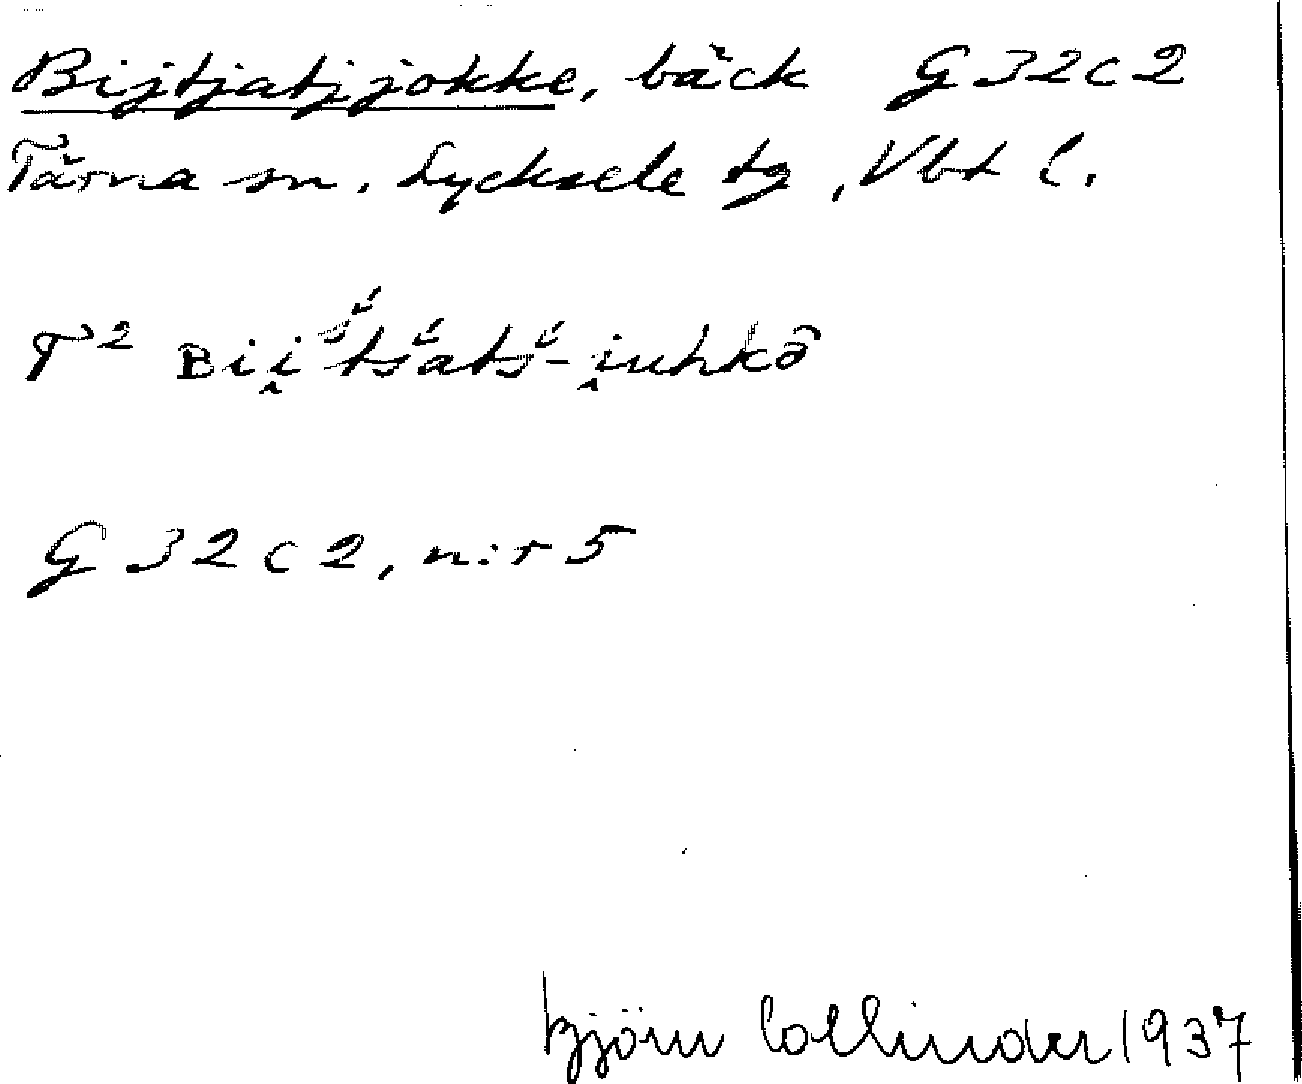 Bijtjatjjokke, bäck G32c2
Tärna sn. Lycksele tg, Vbt l.
T² ʙii̯tšʹatšʹ-i̯uhkō̂
G 32 c 2, n:r 5
Björn Collinder 1937